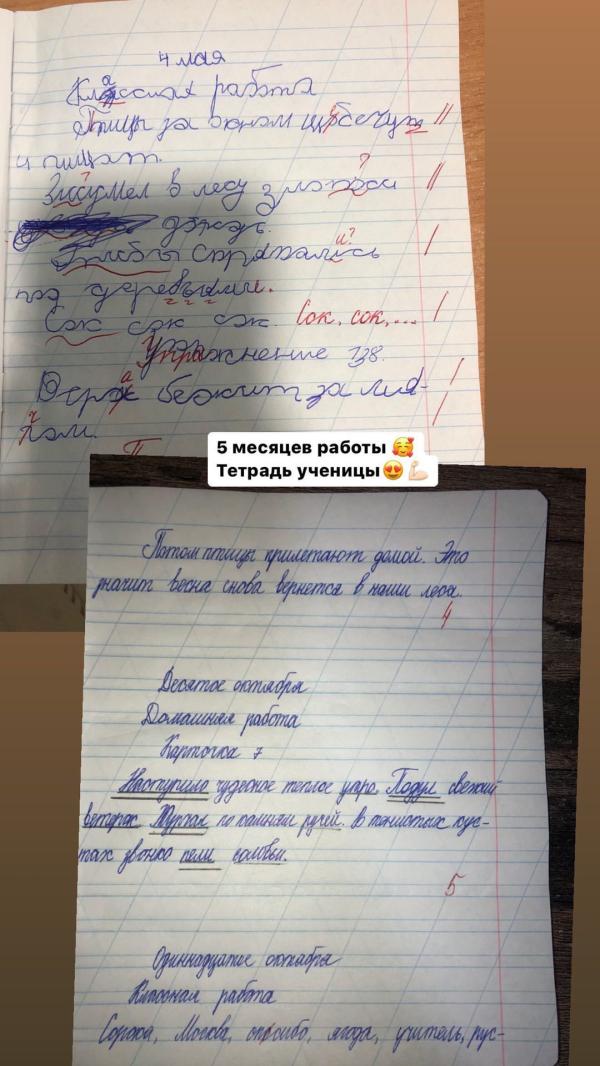 4 мая
Классная работа
Птицы за окном щебечут
и пищат.
в лесу
дождь.
Грибы спрятались
под деревьями.
Сок сок сок. Сок, сок,...
Упражнение 138.
бежит за
5 месяцев работы 🥰
Тетрадь ученицы😍💪🏻
Потом птицы прилетают домой. Это
значит весна снова вернется в наши леса.
4
Десятое октября
Домашняя работа
Карточка 7
Наступило чудесное теплое утро. Подул свежий
ветерок. Журчал по камням ручей. В тенистых кус-
тах звонко пели соловьи.
5
Одиннадцатое октября
Классная работа
Сорока, Москва, спасибо, ягода, учитель, рус-